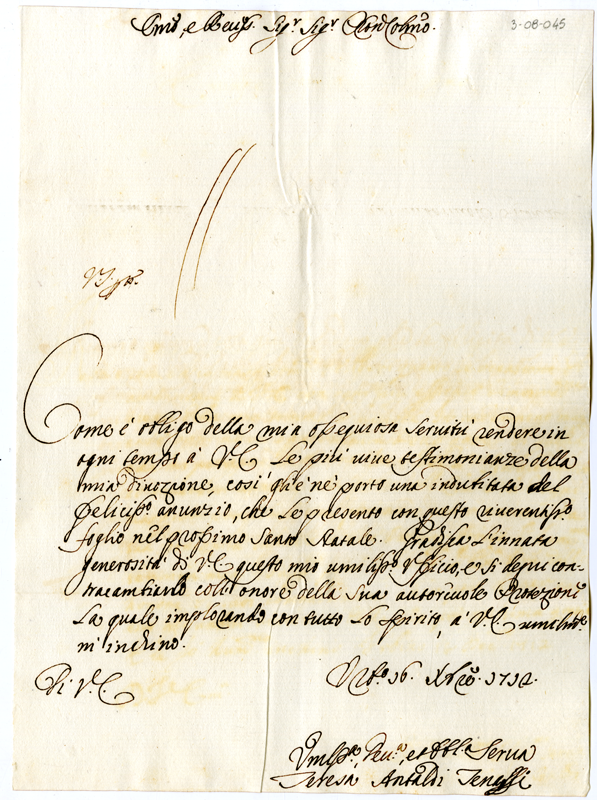 3-08-045
Emo, e Reu. Sig.r Sig.r Pron Colmo.
Come è obligo della mia ossequiosa seruitù rendere in
ogni tempo à V.E. le più uiue testimonianze della
mia diuozione, così qui ne porto una indubitata del
felicisso. anunzio, che le presento con questo riuerentisso.
foglio nel prossimo Santo Natale. Gradisca l'innata
generosità di V.E. questo mio umilisso. Vfficio, e si degni con-
tracambiarlo coll'onore della Sua autoreuole Protezione
la quale implorando con tutto lo spirito, à V.E. umilmte.
m'inchino.
Di V.E.
16. Xbre. 1712.
Vmilsa. Deu.a, et Obbla. Serua
Teresa Antaldi